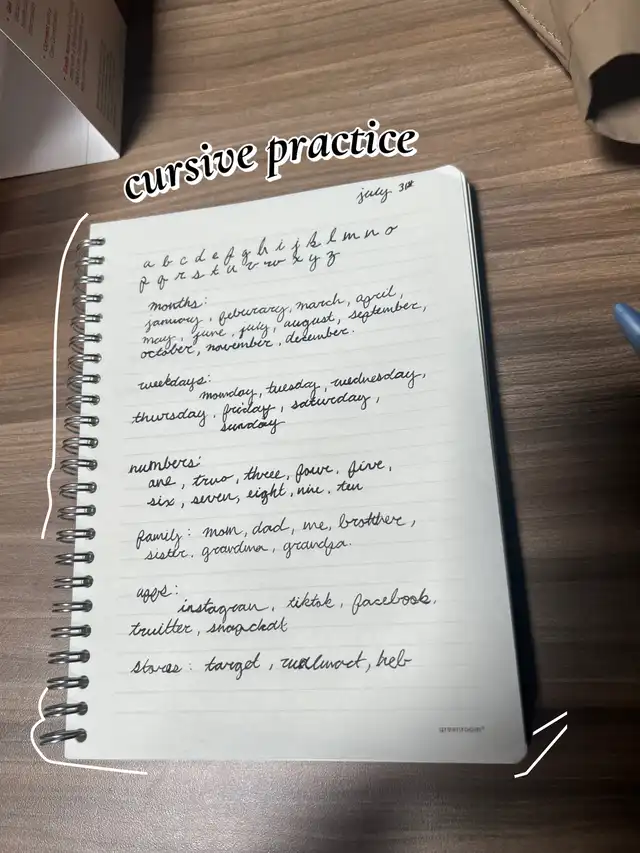 cursive practice
july 31st
a b c d e f g h i j k l m n o
p q r s t u v w x y z
months:
january, feburary, march, april,
may, june, july, august, september,
october, november, december.
weekdays:
monday, tuesday, wednesday,
thursday, friday, saturday,
sunday
numbers:
one, two, three, four, five,
six, seven, eight, nine, ten
family: mom, dad, me, brother,
sister, grandma, grandpa.
apps:
instagram, tiktok, facebook,
twitter, snapchat
stores: target, walmart, heb
greenroom